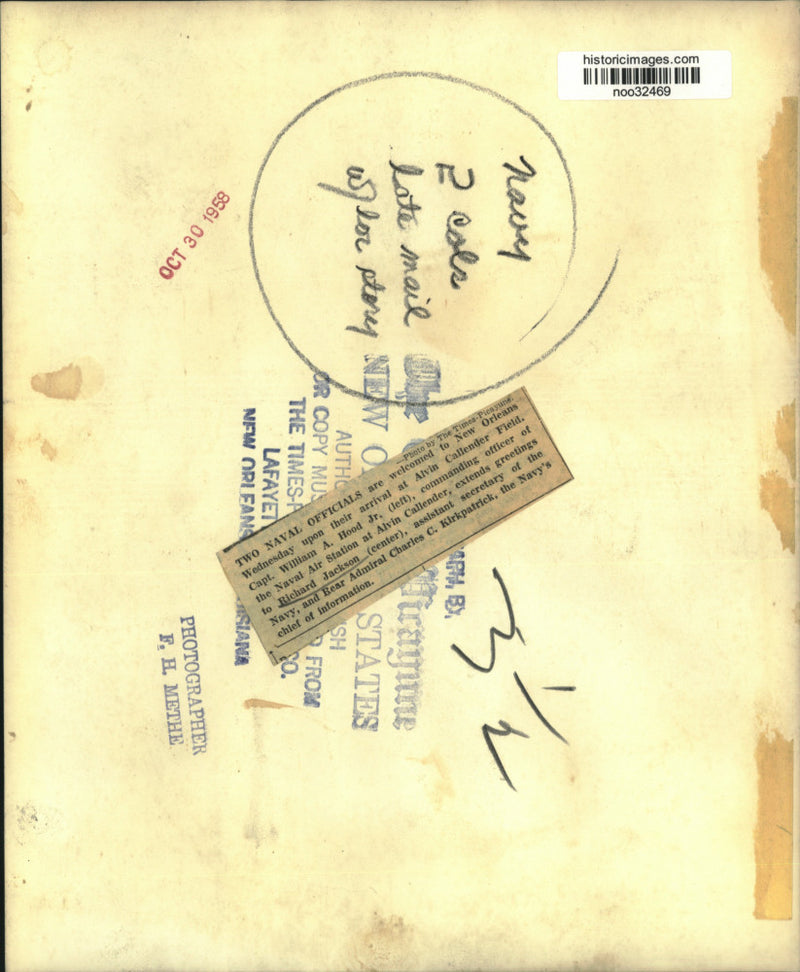 historicimages.com
noo32469
Navy
2 cols
late mail
w/ loc story
OCT 30 1958
—Photo by The Times-Picayune.
TWO NAVAL OFFICIALS are welcomed to New Orleans
Wednesday upon their arrival at Alvin Callender Field.
Capt. William A. Hood Jr. (left), commanding officer of
the Naval Air Station at Alvin Callender, extends greetings
to Richard Jackson (center), assistant secretary of the
Navy, and Rear Admiral Charles C. Kirkpatrick, the Navy's
chief of information.
The Picayune
NEW O STATES
AUTHO SH
OR COPY MUS D FROM
THE TIMES-P CO.
LAFAYET
NEW ORLEANS ISIANA
ARM, BY,
3 1/2
PHOTOGRAPHER
F. H. METHE